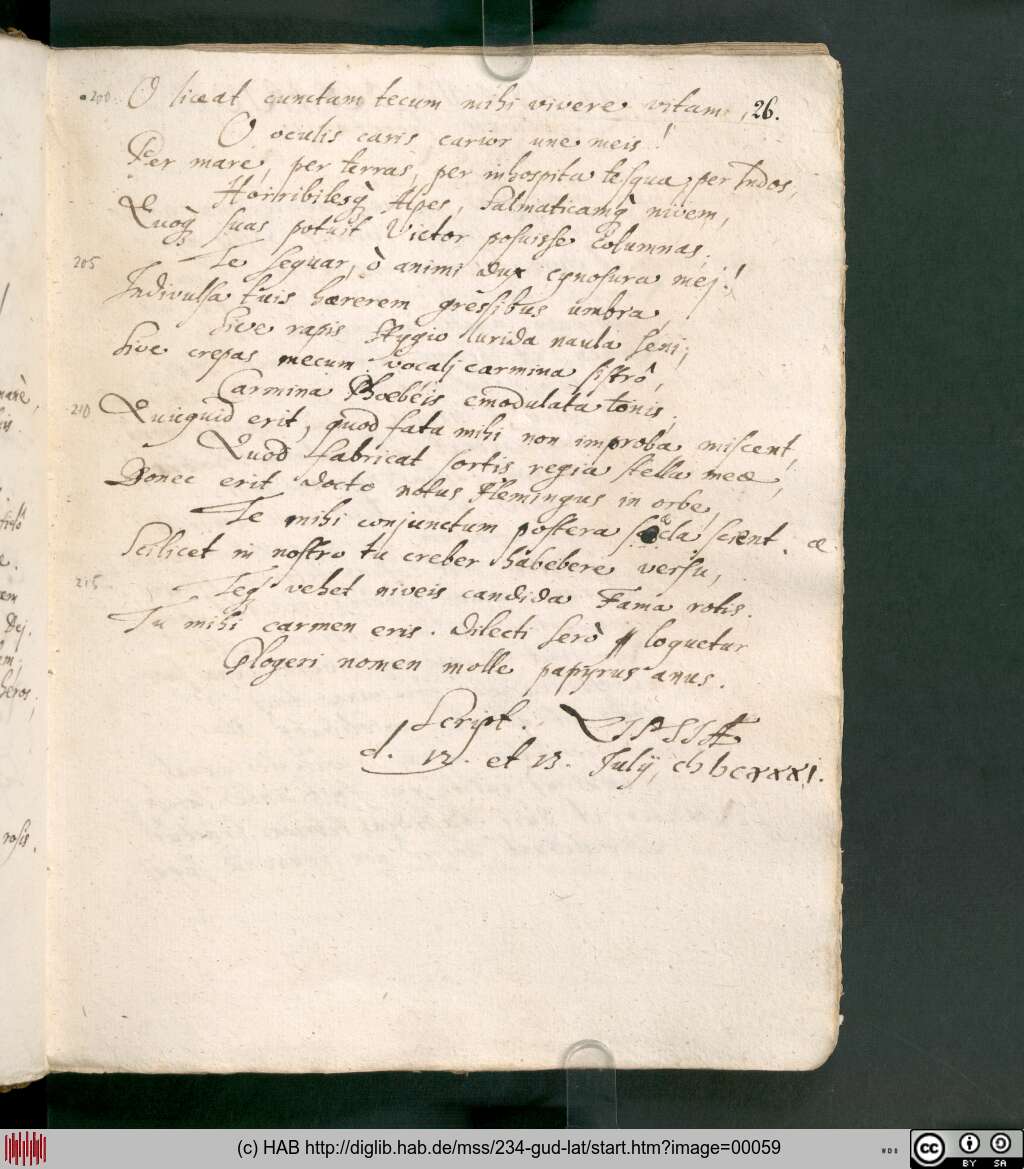 200 O liceat cunctam tecum mihi vivere vitam, 26.
O oculis caris carior une meis!
Per mare, per terras, per inhospita tesqua, per Indos,
Horribilesq; Alpes, Salmaticamq; nivem,
Quoq; suas potuit Victor posuisse Columnas.
205 Te sequar, ô animi dux cynosura mej!
Indivulsa tuis hærerem gressibus umbra,
Sive rapis Stygio lurida naula seni,
Sive crepas mecum vocalj carmina sistrô,
Carmina Phœbéis emodulata tonis.
210 Quicquid erit, quod fata mihi non improba miscent,
Quod fabricat sortis regia stella meæ,
Donec erit docto notus Flemingus in orbe,
Te mihi conjunctum postera sæcla scient. æ
Scilicet in nostro tu creber habebere versu,
215 Teq; vehet niveis candida Fama rotis.
Tu mihi carmen eris. dilecti serò loquetur
Glogeri nomen molle papyrus anus.
Script. LIPSIÆ
d. 12. et 13. Julij,
rosis.
heros,
Dej.
(c) HAB http://diglib.hab.de/mss/234-gud-lat/start.htm?image=00059
cc BY SA